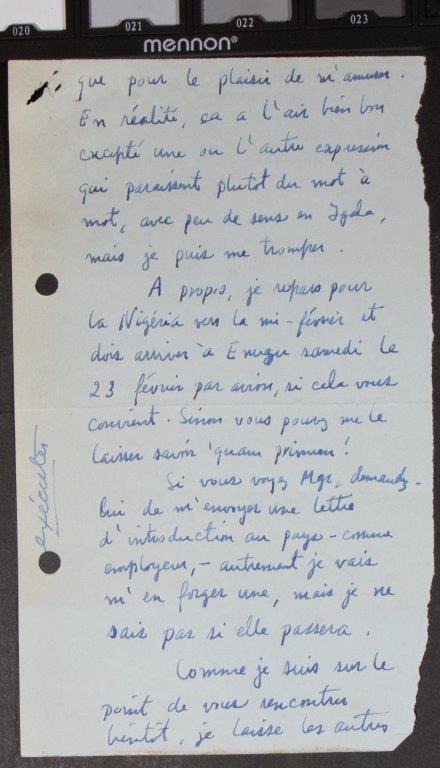 020 021 022 023
mennon®
que pour le plaisir de m'amuser.
En réalité, ça a l'air bien bon
excepté une ou l'autre expression
qui paraissent plutôt du mot à
mot, avec peu de sens en Igala,
mais je puis me tromper.
A propos, je repars pour
la Nigéria vers la mi-février et
dois arriver à Enugu samedi le
23 février par avion, si cela vous
convient. Sinon vous pouvez me le
laisser savoir 'quam primum'!
Si vous voyez Mgr, demandez-
lui de m'envoyer une lettre
d'introduction au pays - comme
employeur, - autrement je vais
m'en forger une, mais je ne
sais pas si elle passera.
Comme je suis sur le
point de vous rencontrer
bientôt, je laisse les autres
exécuter